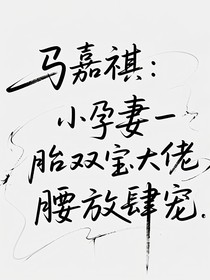 马嘉祺：
小孕妻一
胎双宝大佬
腰放肆宠.